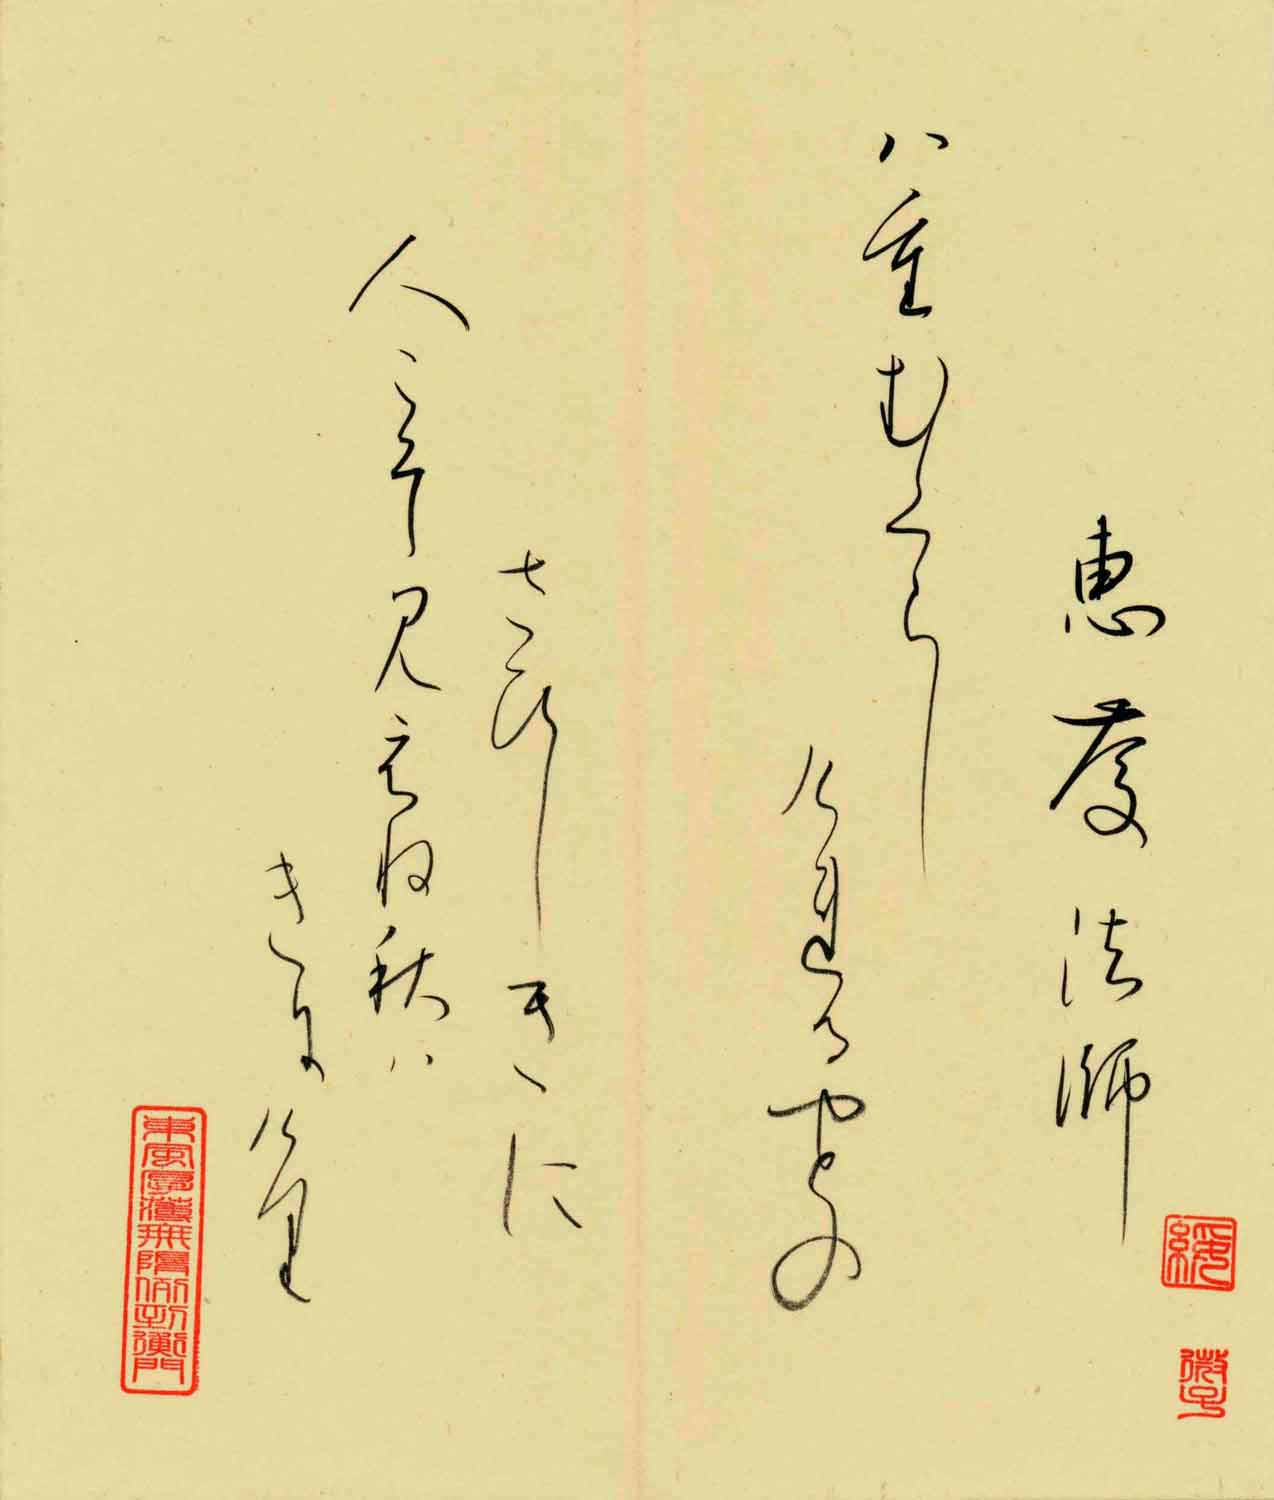 恵慶法師
八重むくらし
けれるやとの
さひしきに
人こそ見えね秋は
きにけり